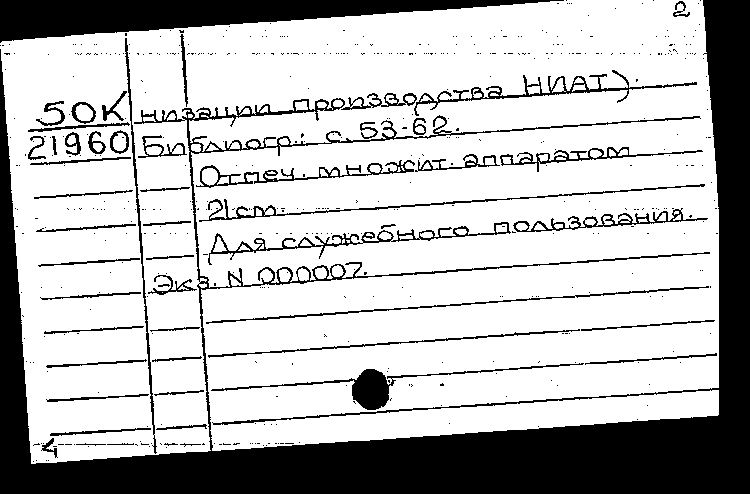 2
50К низации производства НИАТ).
21960 Библиогр.: с. 53-62.
Отпеч. множит. аппаратом
21см.
Для служебного пользования.
Экз. N 000007.
4